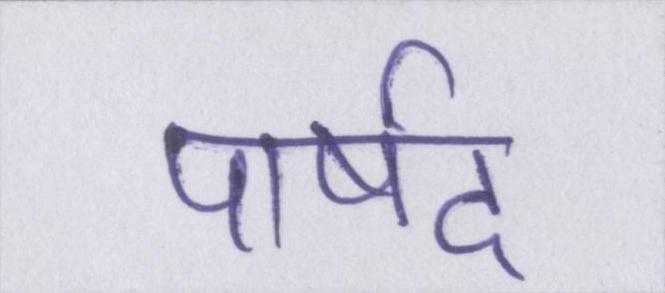 पार्षद